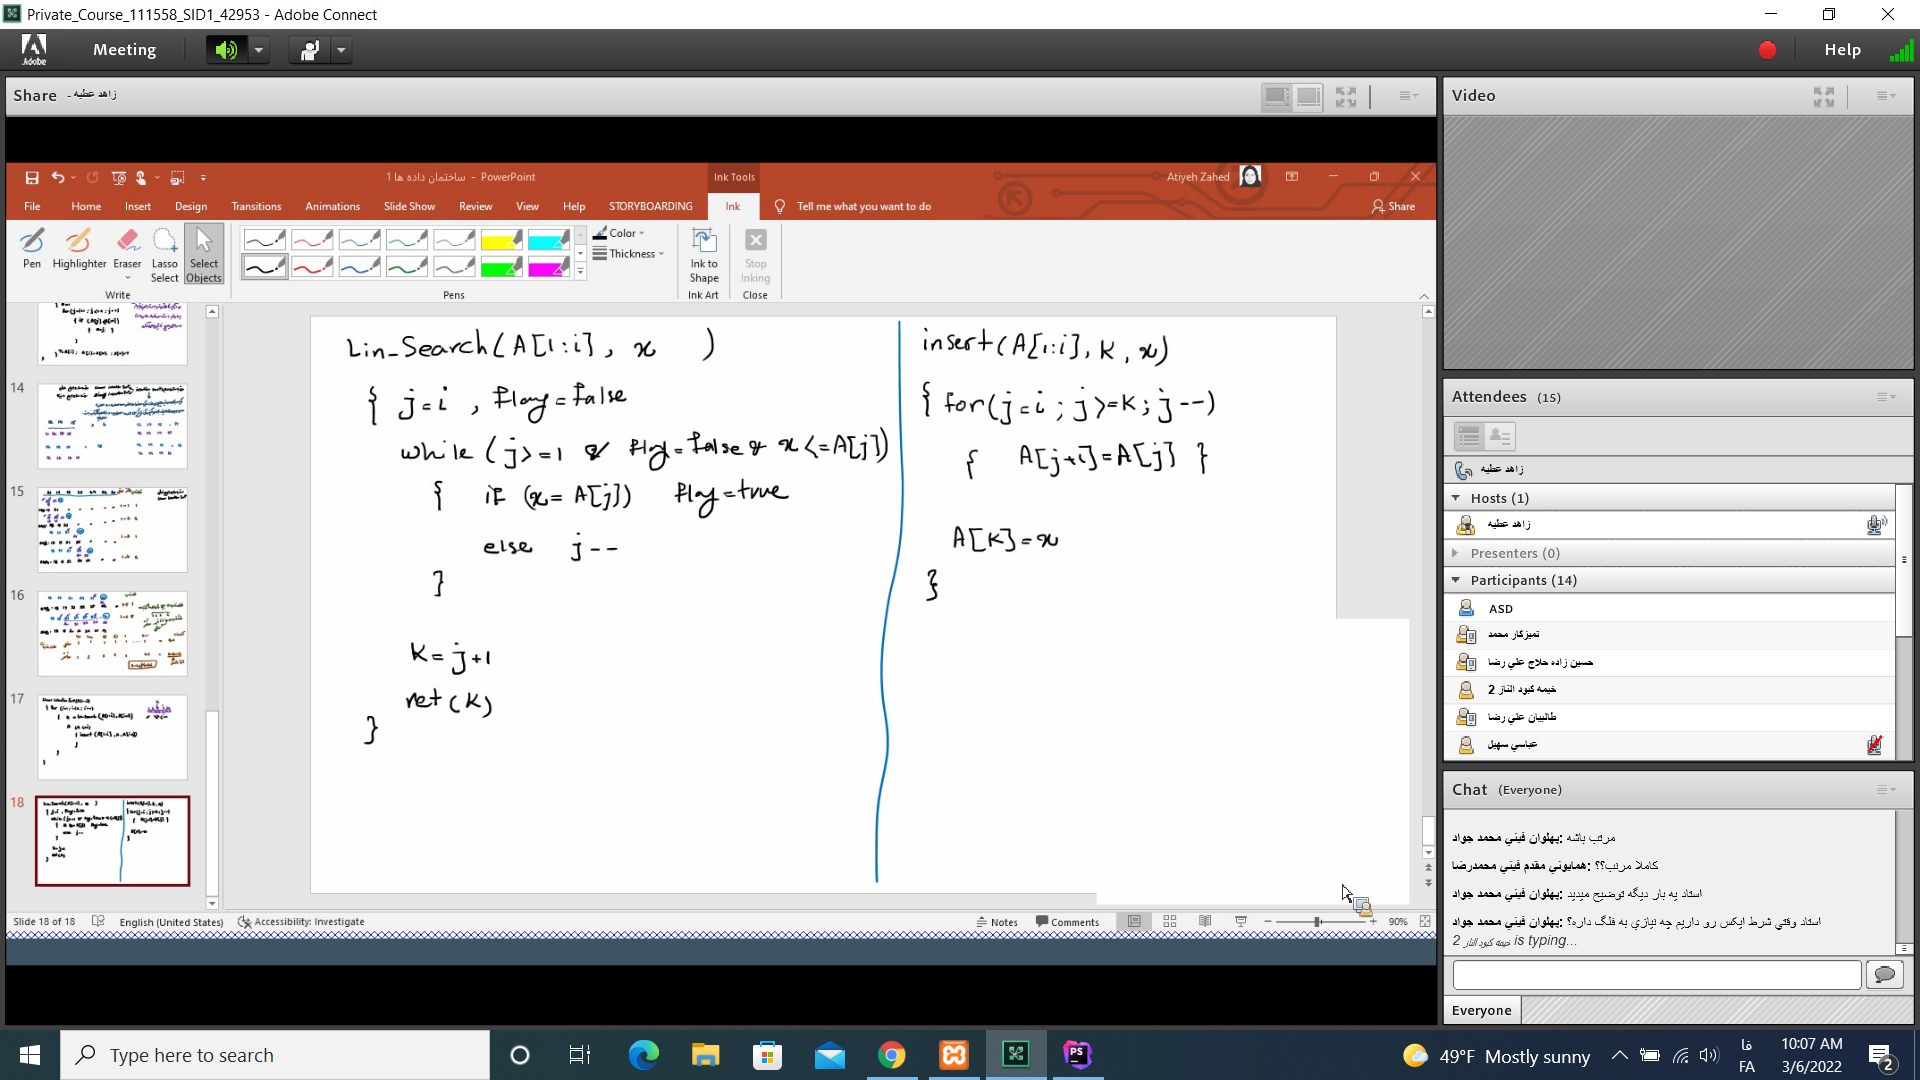 Private_Course_111558_SID1_42953 - Adobe Connect
Adobe
Meeting
Help
Share - زاهد عطیه
ساختمان داده ها 1 - PowerPoint
Ink Tools
Atiyeh Zahed
File Home Insert Design Transitions Animations Slide Show Review View Help STORYBOARDING Ink Tell me what you want to do
Share
Pen
Highlighter
Eraser
Lasso Select
Select Objects
Color
Thickness
Ink to Shape
Stop Inking
Write
Pens
Ink Art
Close
14
15
16
17
18
Lin_Search(A[1:i], x )
{ j=i , flag=false
while (j>=1 & flag=false & x<=A[j])
{ if (x=A[j]) flag=true
else j--
}
K=j+1
ret(K)
}
insert(A[1:i], K, x)
{ for(j=i; j>=K; j--)
{ A[j+1]=A[j] }
A[K]=x
}
Slide 18 of 18
English (United States)
Accessibility: Investigate
Notes
Comments
90%
Video
Attendees (15)
زاهد عطیه
Hosts (1)
زاهد عطیه
Presenters (0)
Participants (14)
ASD
تمیزکار محمد
حسین زاده حلاج علي رضا
خیمه کبود الناز 2
طالبیان علي رضا
عباسي سهیل
Chat (Everyone)
پهلوان فیني محمد جواد: مرتب باشه
همایوني مقدم فیني محمدرضا: کاملا مرتب؟؟
پهلوان فیني محمد جواد: استاد یه بار دیگه توضیح میدید
پهلوان فیني محمد جواد: استاد وقتي شرط ایکس رو داریم چه نیازي به فلگ داره؟
خیمه کبود الناز 2 is typing...
Everyone
Type here to search
49°F Mostly sunny
فا
FA
10:07 AM
3/6/2022
2